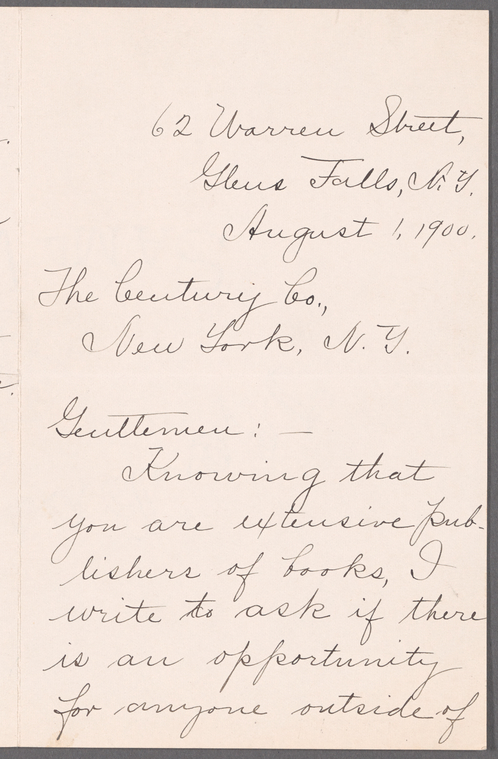 62 Warren Street,
Glens Falls, N.Y.
August 1, 1900.
The Century Co.,
New York, N.Y.
Gentlemen: —
Knowing that
you are extensive pub-
lishers of books, I
write to ask if there
is an opportunity
for anyone outside of